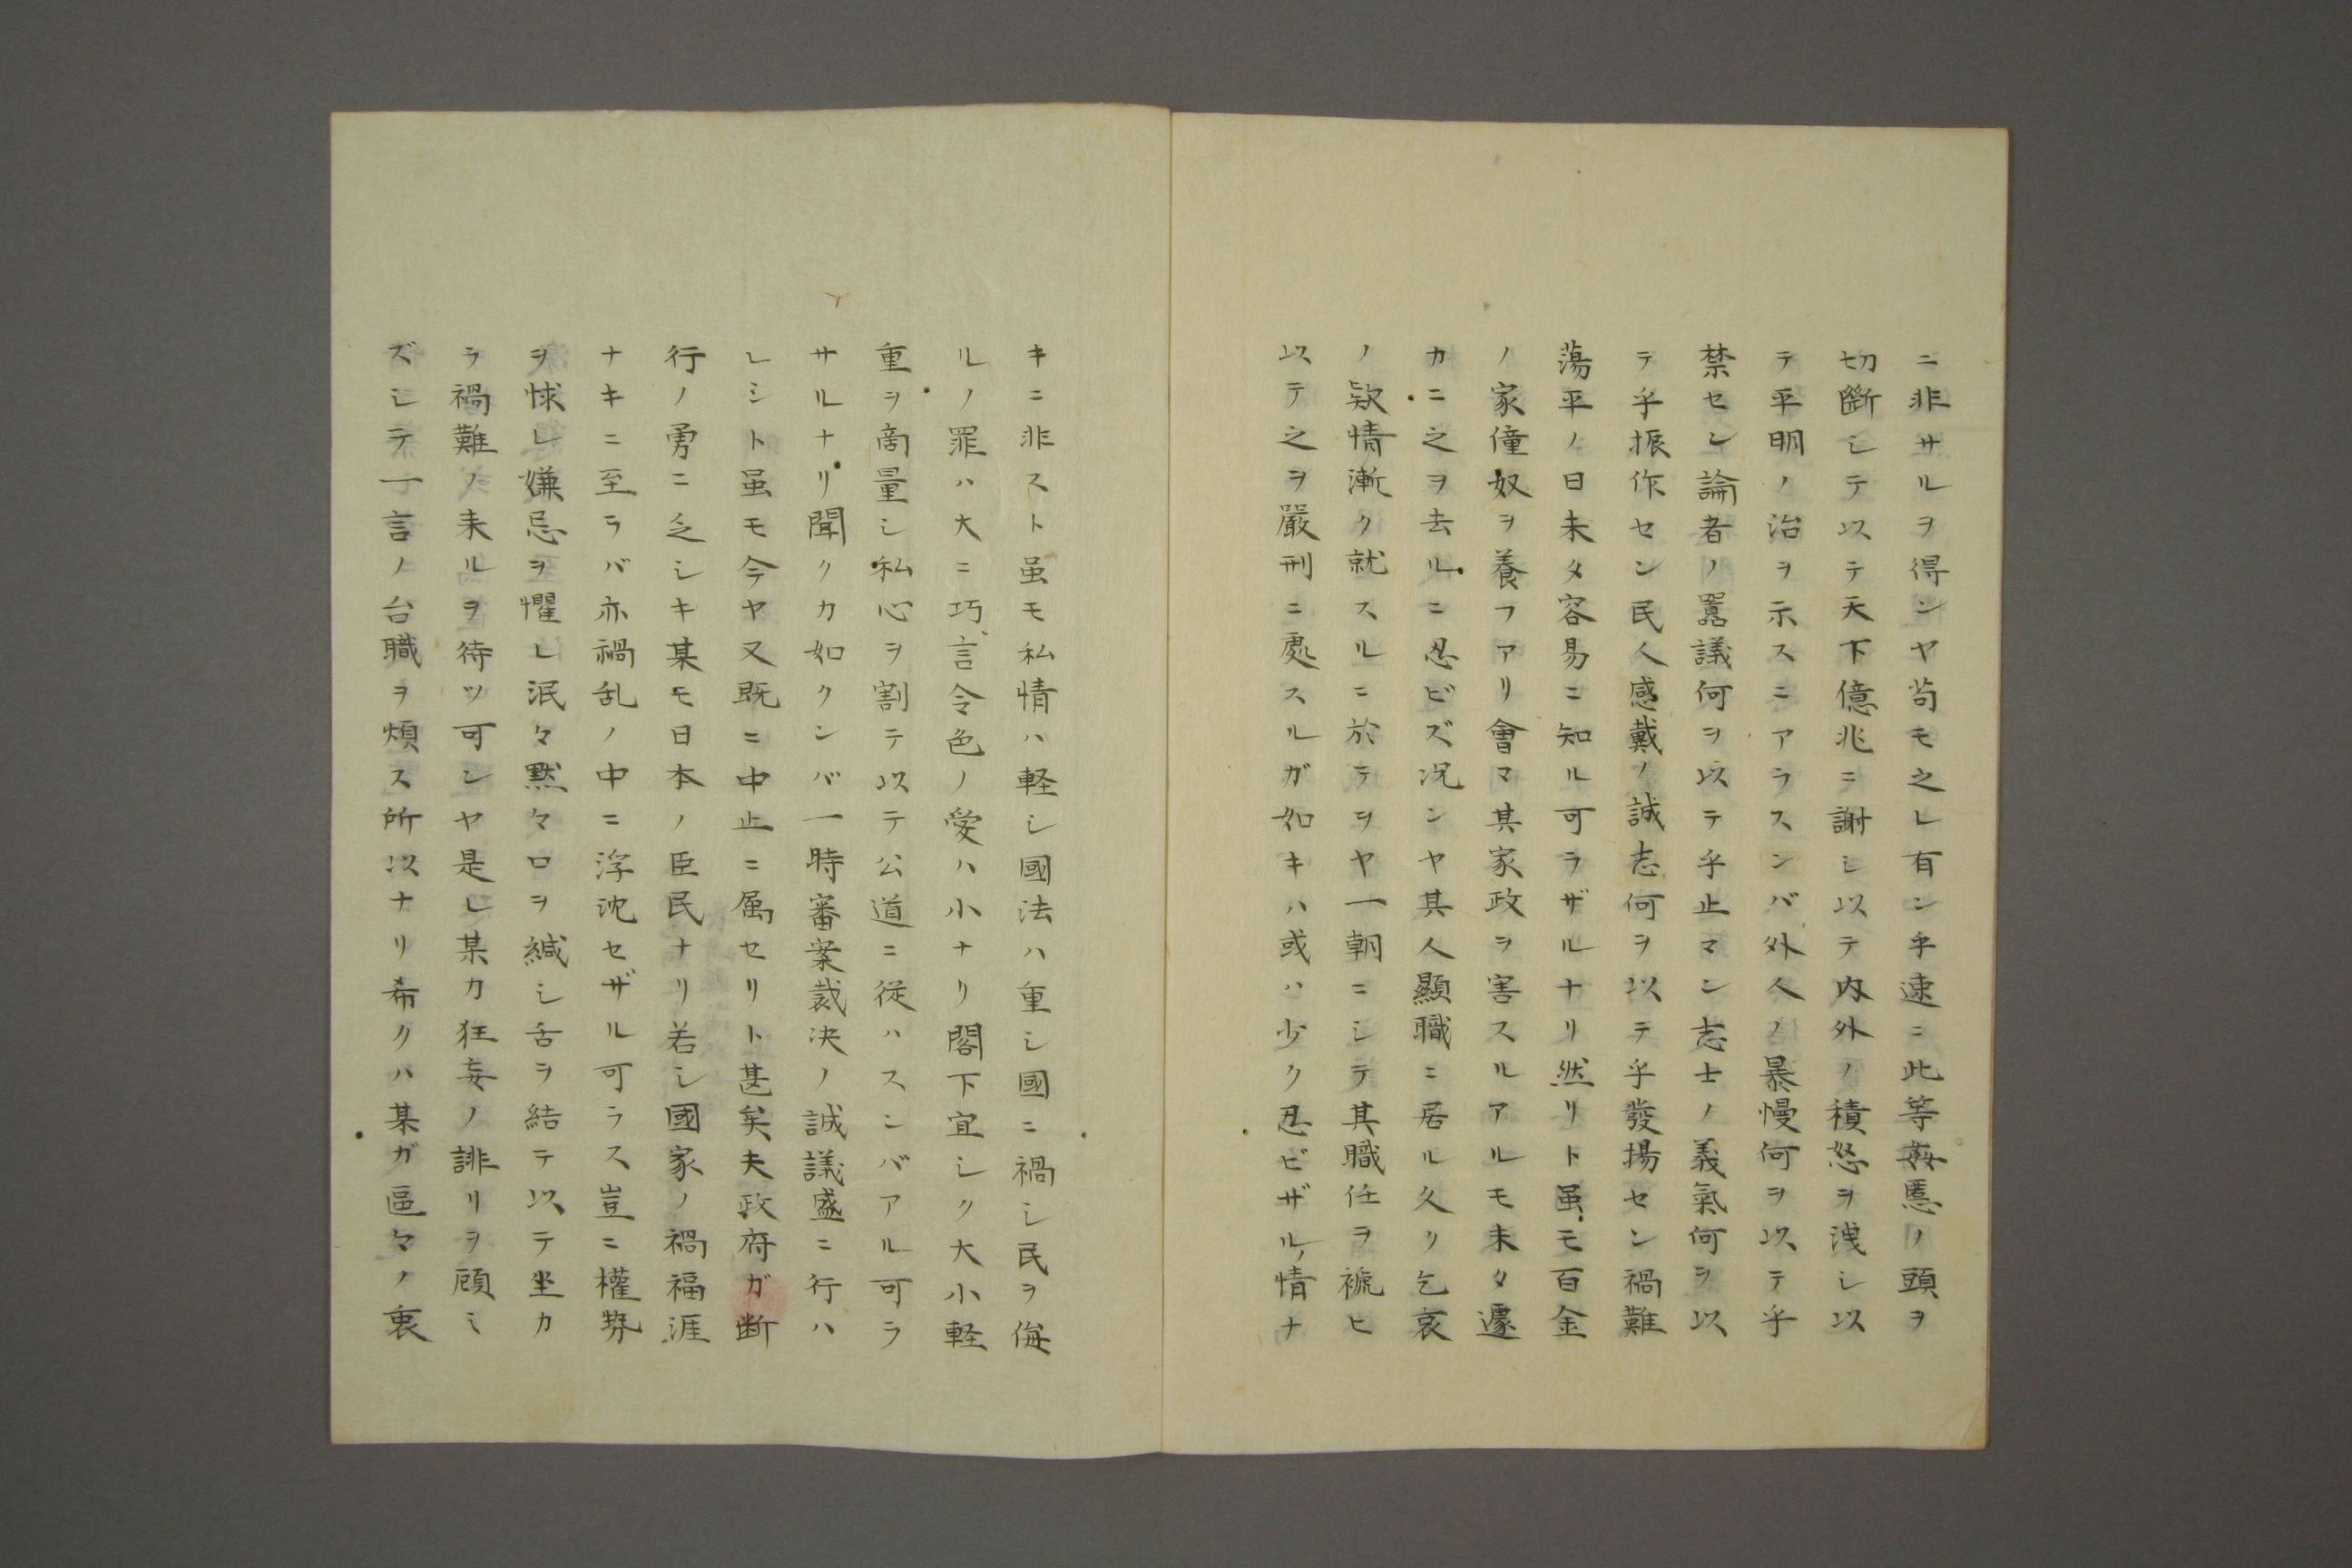 ニ非サルヲ得ンヤ苟モ之レ有ン乎速ニ此等姦慝ノ頭ヲ
切斷シテ以テ天下億兆ニ謝シ以テ内外ノ積怒ヲ洩シ以
テ平明ノ治ヲ示スニアラスンバ外人ノ暴慢何ヲ以テ乎
禁セン論者ノ囂議何ヲ以テ乎止マン志士ノ義氣何ヲ以
テ乎振作セン民人感戴ノ誠志何ヲ以テ乎發揚セン禍難
蕩平ノ日未タ容易ニ知ル可ラザルナリ然リト虽モ百金
ノ家僮奴ヲ養フアリ會マ其家政ヲ害スルアルモ未タ遽
カニ之ヲ去ルニ忍ビズ况ンヤ其人顯職ニ居ル久リ乞哀
ノ欵情漸ク就スルニ於テヲヤ一朝ニシテ其職任ヲ褫ヒ
以テ之ヲ嚴刑ニ處スルガ如キハ或ハ少ク忍ビザルノ情ナ
キニ非スト虽モ私情ハ軽シ國法ハ重シ國ニ禍シ民ヲ侮
ルノ罪ハ大ニ巧言令色ノ愛ハ小ナリ閣下宜シク大小軽
重ヲ商量シ私心ヲ割テ以テ公道ニ従ハスンバアル可ラ
サルナリ聞クカ如クンバ一時審案裁决ノ誠議盛ニ行ハ
レシト虽モ今ヤ又既ニ中止ニ属セリト甚矣夫政府ガ断
行ノ勇ニ乏シキ某モ日本ノ臣民ナリ若シ國家ノ禍福涯
ナキニ至ラバ亦禍乱ノ中ニ浮沈セザル可ラス豈ニ權勢
ヲ怵レ嫌忌ヲ懼レ泯々黙々口ヲ緘シ舌ヲ結テ以テ坐カ
ラ禍難ノ来ルヲ待ツ可ンヤ是レ某カ狂妄ノ誹リヲ顧ミ
ズシテ一言ノ台職ヲ煩ス所以ナリ希クハ某ガ區々ノ衷